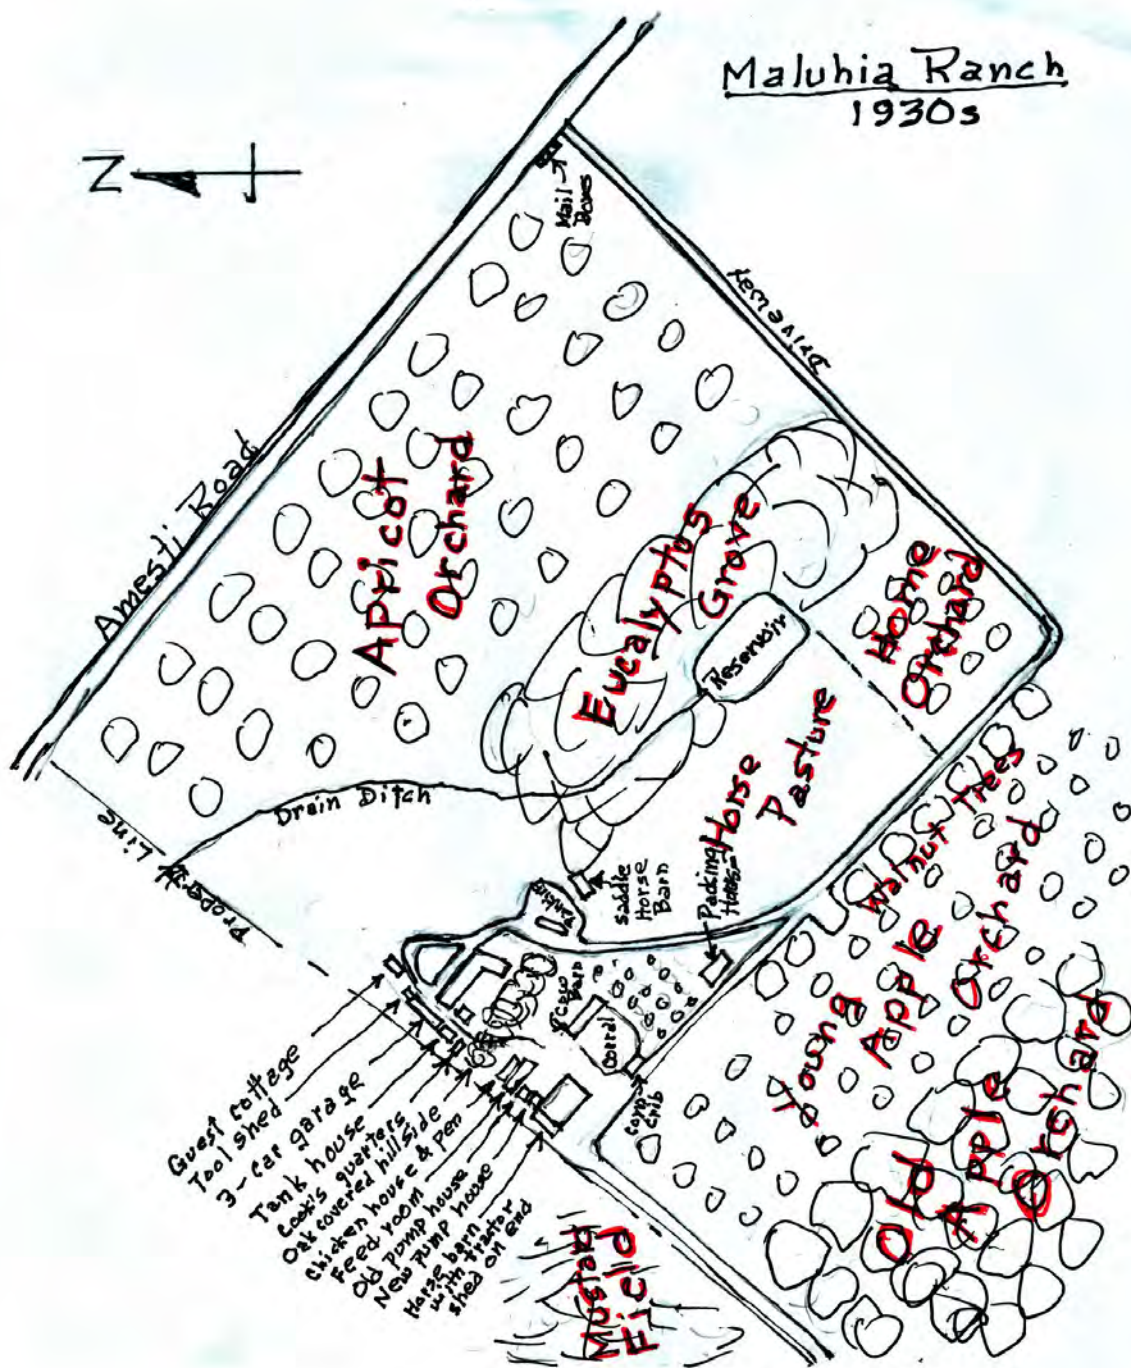 Maluhia Ranch
1930s
N
Mail
Boxes
Driveway
Amesti Road
Apricot
Orchard
Eucalyptos
Grove
Reservoir
Home
Orchard
Horse
Pasture
Drain Ditch
Property Line
Saddle
Horse
Barn
Packing
House
Walnut Trees
Young
Apple
Orchard
Old
Apple
Orchard
Cow
Barn
Corral
Corn
Crib
Guest cottage
Tool shed
3-car garage
Tank house
Cook's quarters
Oak covered hillside
Chicken house & Pen
Feed room
Old Pump house
New Pump house
Horse barn
with tractor
shed on end
Mustard
Field